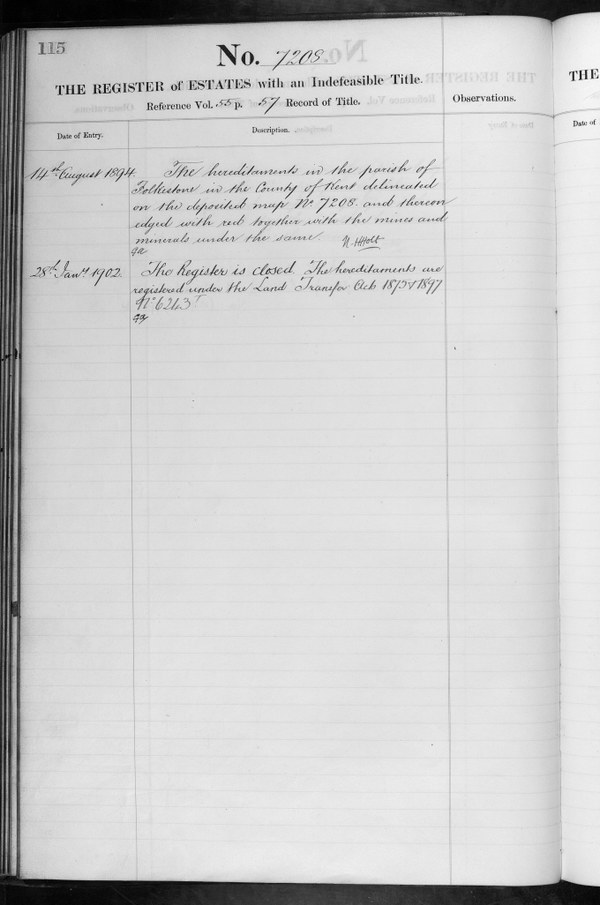 115
No. 7208
THE REGISTER of ESTATES with an Indefeasible Title.
Reference Vol. 55 p. 57 Record of Title.
Observations.
Date of Entry.
Description.
14th August 1894
The hereditaments in the parish of
Folkestone in the County of Kent delineated
on the deposited map No. 7208 and thereon
edged with red together with the mines and
minerals under the same.
28th Jany 1902
The Register is closed. The hereditaments are
registered under the Land Transfer Acts 1875 & 1897
No 6243
THE
Date of